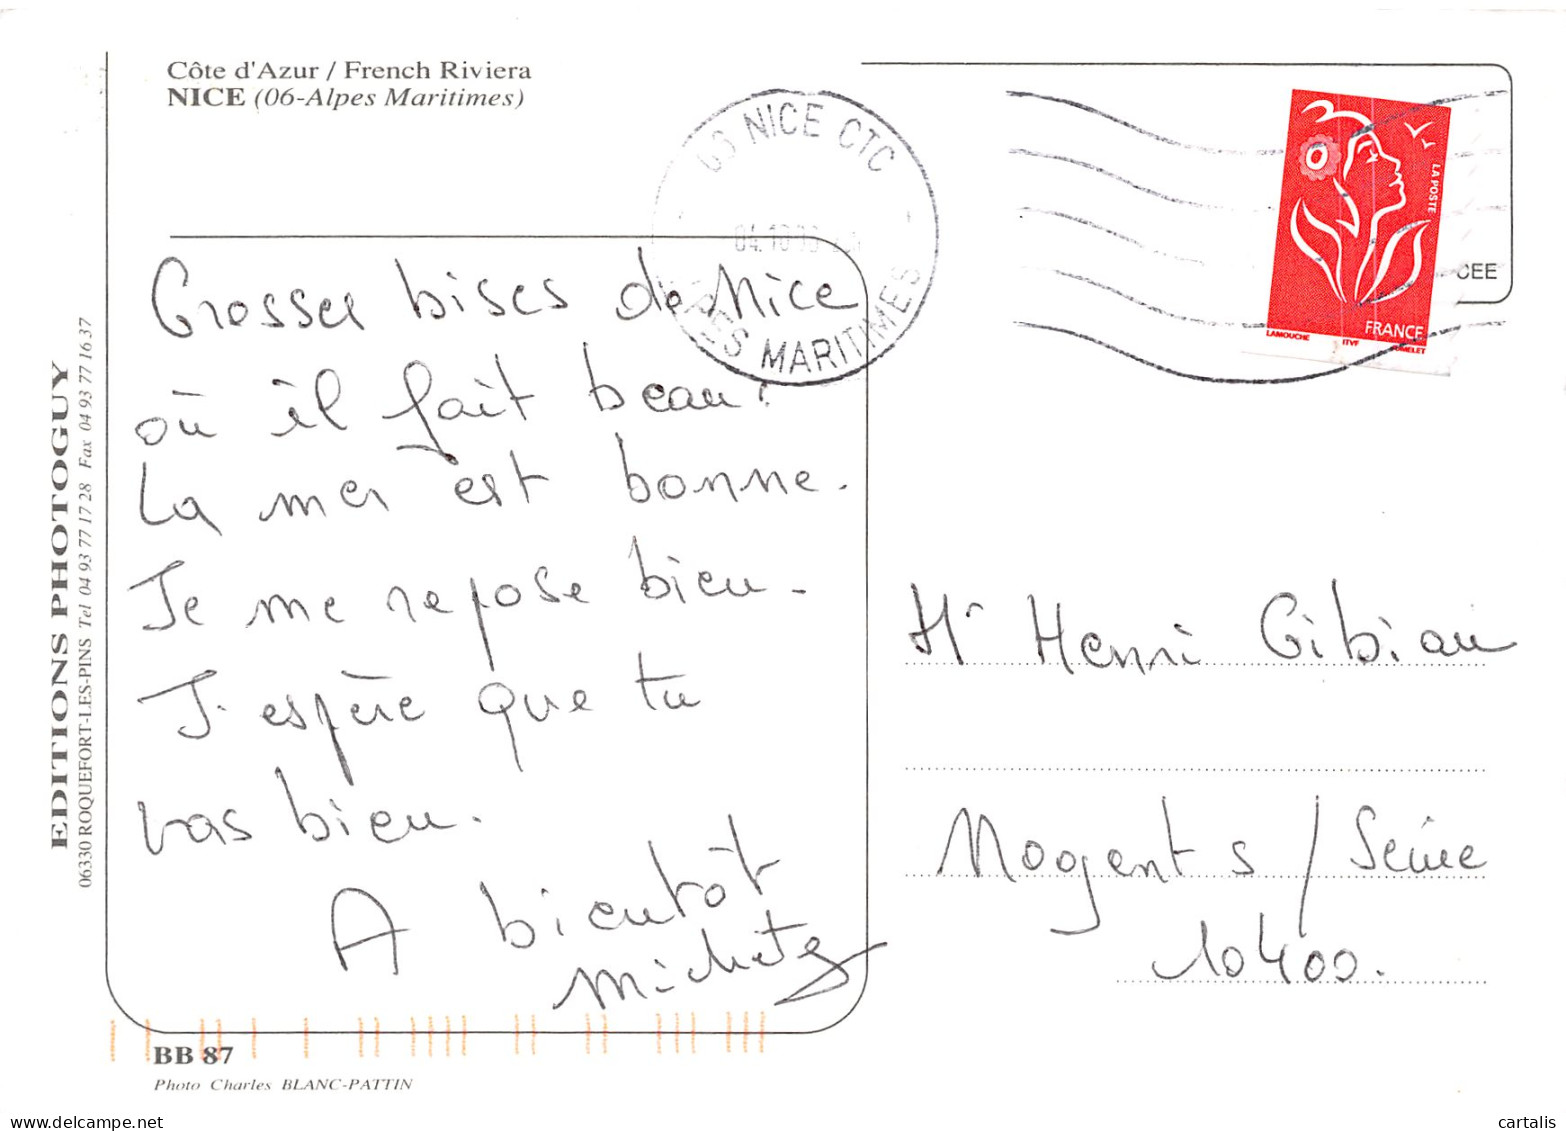 Côte d'Azur / French Riviera
NICE (06-Alpes Maritimes)
NICE CTC
ALPES MARITIMES
LA POSTE
FRANCE
LAMOUCHE ITVF
CEE
Grosses bises de Nice
où il fait beau!
La mer est bonne.
Je me repose bien.
J'espère que tu
vas bien.
A bientôt
Mr Henri Gibiau
Nogent s/Seine
10400.
EDITIONS PHOTOGUY
06330 ROQUEFORT-LES-PINS Tel 04 93 77 17 28 Fax 04 93 77 16 37
BB 87
Photo Charles BLANC-PATTIN
cartalis